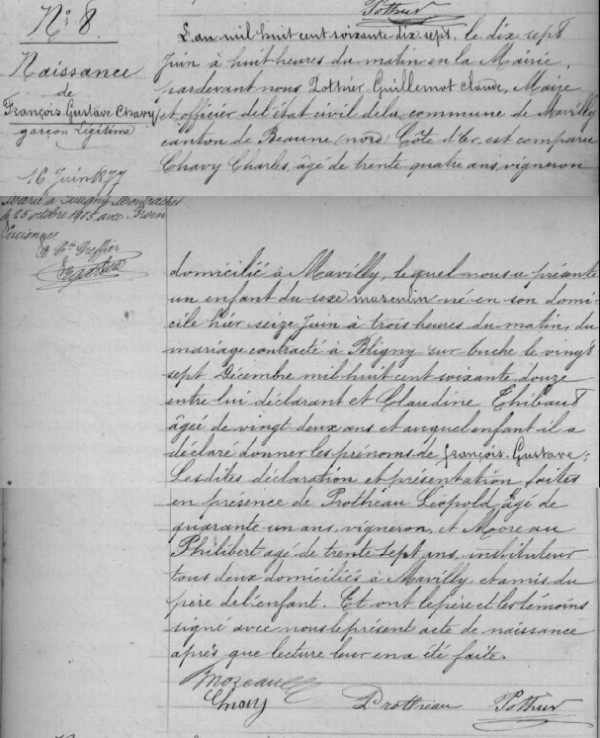 Nº 8.
Naissance
de
François Gustave Chavy
garçon légitime
16 Juin 1877
Marié à
le 25 octobre 1905 avec
Pothier
L'an mil huit cent soixante dix sept, le dix sept
Juin à huit heures du matin en la Mairie,
pardevant nous Pothier Guillemot Claude, Maire
et officier de l'état civil de la commune de Mavilly
canton de Beaune (nord) Côte d'Or, est comparu
Chavy Charles, âgé de trente quatre ans, vigneron
domicilié à Mavilly, lequel nous a présenté
un enfant du sexe masculin né en son domi-
cile hier seize Juin à trois heures du matin, du
mariage contracté à Bligny sur Ouche le vingt
sept Décembre mil huit cent soixante douze
entre lui déclarant et Claudine Thibaut
âgée de vingt deux ans et auquel enfant il a
déclaré donner les prénoms de françois-Gustave:
Lesdites déclaration et présentation faites
en présence de Prothéau Léopold, âgé de
quarante un ans, vigneron, et Moreau
Philibert agé de trente sept ans, instituteur
tous deux domiciliés à Mavilly, et amis du
père de l'enfant. Et ont le père et les témoins
signé avec nous le présent acte de naissance
après que lecture leur en a été faite.
Moreau
Chavy Prothéau Pothier